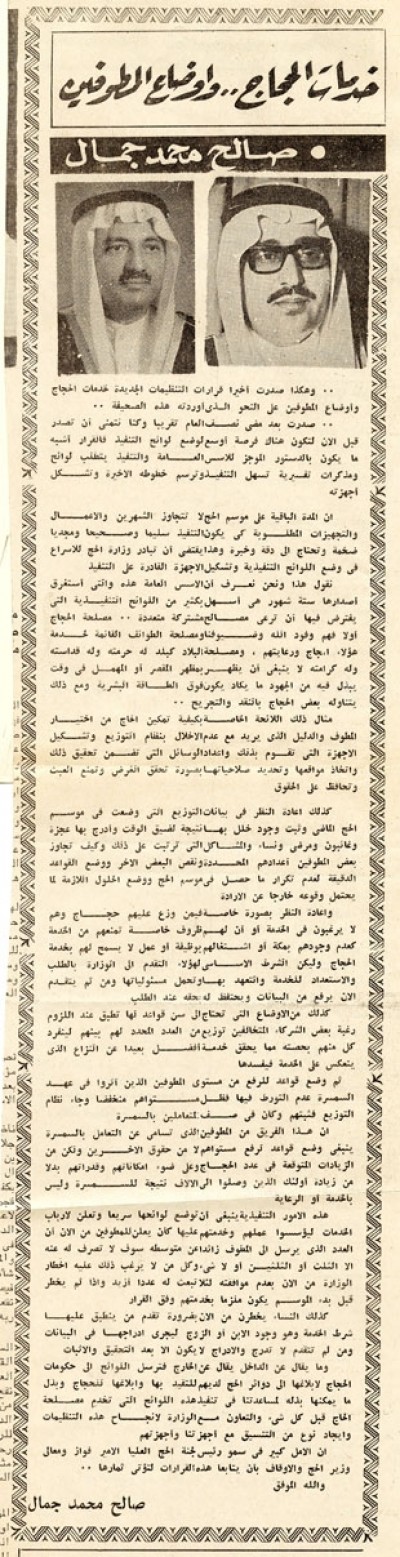 خدمات الحجاج .. واوضاع المطوفين
• صالح محمد جمال
٠٠ وهكذا صدرت أخيرا قرارات التنظيمات الجديدة خدمات الحجاج
وأوضاع المطوفين على النحو الذى أوردته هذه الصحيفة ٠٠
٠٠ صدرت بعد مضى نصف العام تقريبا وكنا نتمنى أن تصدر
قبل الان لتكون هناك فرصة أوسع لوضع لوائح التنفيذ فالقرار أشبه
ما يكون بالدستور الموجز للاسس العامة والتنفيذ يتطلب لوائح
ومذكرات تفسيرية تسهل التنفيذ وترسم خطوطه الاخيرة وتشكل
أجهزته
ان المدة الباقية على موسم الحج لا تتجاوز الشهرين والاعمال
والتجهيزات المطلوبة كى يكون التنفيذ سليما وصحيحا ومجديا
ضخمة وتحتاج الى دقة وخبرة وهذا يقتضى أن تبادر وزارة الحج للاسراع
فى وضع اللوائح التنفيذية وتشكيل الاجهزة القادرة على التنفيذ
نقول هذا ونحن نعرف أن الاسس العامة هذه والتى أستغرق
أصدارها ستة شهور هى أسهل بكثير من اللوائح التنفيذية التى
يفترض فيها أن ترعى مصالح مشتركة متعددة ٠٠ مصلحة الحجاج
أولا فهم وفود الله وضيوفنا ومصلحة الطوائف القائمة بخدمة
هؤلاء الحجاج ورعايتهم ، ومصلحة البلاد كبلد له حرمته وله قداسته
وله كرامته لا ينبغى أن يظهر بمظهر المقصر أو المهمل فى وقت
يبذل فيه من الجهود ما يكاد يكون فوق الطاقة البشرية ومع ذلك
يتناوله بعض الحجاج بالنقد والتجريح ٠٠
مثال ذلك اللائحة الخاصة بكيفية تمكين الحاج من اختيار
المطوف والدليل الذى يريد مع عدم الاخلال بنظام التوزيع وتشكيل
الاجهزة التى تقوم بذلك واعداد الوسائل التى تضمن تحقيق ذلك
واتخاذ مواقعها وتحديد صلاحياتها بصورة تحقق الغرض وتمنع العبث
وتحافظ على الحقوق
كذلك اعادة النظر فى بيانات التوزيع التى وضعت فى موسم
الحج الماضى وثبت وجود خلل بها نتيجة لضيق الوقت وأدرج بها عجزة
وغائبون ومرضى ونساء والمشاكل التى ترتبت على ذلك وكيف تجاوز
بعض المطوفين أعدادهم المحددة ونقص البعض الاخر ووضع القواعد
الدقيقة لعدم تكرار ما حصل فى موسم الحج ووضع الحلول اللازمة لما
يحتمل وقوعه خارجا عن الارادة
واعادة النظر بصورة خاصة فيمن وزع عليهم حجاج وهم
لا يرغبون فى الخدمة أو أن لهم ظروف خاصة تمنعهم من الخدمة
كعدم وجودهم بمكة أو اشتغالهم بوظيفة أو عمل لا يسمح لهم بخدمة
الحجاج وليكن الشرط الاساسى لهؤلاء التقدم الى الوزارة بالطلب
والاستعداد للخدمة والتعهد بها وتحمل مسئولياتها ومن لم يتقدم
الان يرفع من البيانات ويحتفظ له بحقه عند الطلب
كذلك من الاوضاع التى تحتاج الى سن قواعد لها تطبق عند اللزوم
رغبة بعض الشركاء المتخالفين توزيع من العدد المحدد لهم بينهم لينفرد
كل منهم بحصته مما يحقق خدمة أفضل بعيدا عن النزاع الذى
ينعكس على الخدمة فيفسدها
ثم وضع قواعد للرفع من مستوى المطوفين الذين آثروا فى عهد
السمسرة عدم التورط فيها فظل مستواهم منخفضا وجاء نظام
التوزيع فثبتهم وكان فى صف المتعاملين بالسمسرة
ان هذا الفريق من المطوفين الذى تسامى عن التعامل بالسمسرة
ينبغى وضع قواعد ترفع مستواهم لا من حقوق الاخرين ولكن من
الزيادات المتوقعة فى عدد الحجاج وعلى ضوء امكاناتهم وقدراتهم بدلا
من زيادة أولئك الذين وصلوا الى الالاف نتيجة للسمسرة وليس
بالخدمة أو الرعاية
هذه الامور التنفيذية ينبغى أن توضع لوائحها سريعا وتعلن لارباب
الخدمات ليؤسسوا عملهم وخدمتهم عليها كأن يعلن للمطوفين من الان أن
العدد الذى يرسل الى المطوف زائدا عن متوسطه سوف لا تصرف له عنه
الا الثلث أو الثلثين أو لا شىء وكل من لا يرغب ذلك عليه اخطار
الوزارة من الان بعدم موافقته لئلا تبعث له عددا أزيد واذا لم يخطر
قبل بدء الموسم يكون ملزما بخدمتهم وفق القرار
كذلك النساء يخطرن من الان بضرورة تقدم من ينطبق عليها
شرط الخدمة وهو وجود الابن أو الزوج ليجرى ادراجها فى البيانات
ومن لم تتقدم لا تدرج والادراج لا يكون الا بعد التحقيق والاثبات
وما يقال عن الداخل يقال عن الخارج فترسل اللوائح الى حكومات
الحجاج لابلاغها الى دوائر الحج لديهم للتقيد بها وابلاغها للحجاج وبذل
ما يمكنها بذله لمساعدتنا فى تنفيذ هذه اللوائح التى تخدم مصلحة
الحاج قبل كل شىء والتعاون مع الوزارة لانجاح هذه التنظيمات
وايجاد نوع من التنسيق مع أجهزتنا وأجهزتهم
ان الامل كبير فى سمو رئيس لجنة الحج العليا الامير فواز ومعالى
وزير الحج والاوقاف بأن يتابعا هذه القرارات لتؤتى ثمارها ٠٠
والله الموفق
صالح محمد جمال